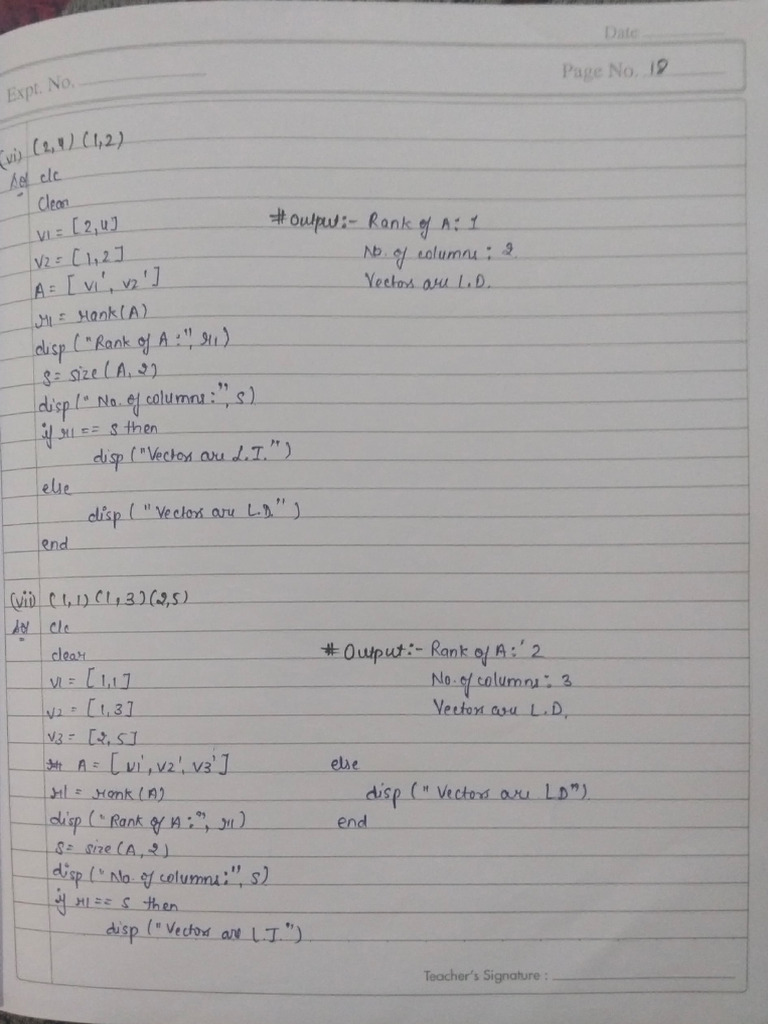 Date
Expt. No.
Page No. 18
(vi) (2,4) (1,2)
Sol clc
clear
v1 = [2,4]
v2 = [1,2]
A = [ v1', v2' ]
r1 = rank(A)
disp ("Rank of A :", r1)
s = size (A, 2)
disp (" No. of columns :", s)
if r1 == s then
disp ("Vectors are L.I.")
else
disp (" Vectors are L.D.")
end
# Output:- Rank of A: 1
No. of columns : 2
Vectors are L.D.
(vii) (1,1) (1,3) (2,5)
Sol clc
clear
v1 = [1,1]
v2 = [1,3]
v3 = [2,5]
A = [ v1', v2', v3' ]
r1 = rank (A)
disp ("Rank of A :", r1)
s = size (A, 2)
disp (" No. of columns:", s)
if r1 == s then
disp ("Vectors are L.I.")
else
disp (" Vectors are LD")
end
# Output:- Rank of A:' 2
No. of columns : 3
Vectors are L.D.
Teacher's Signature :